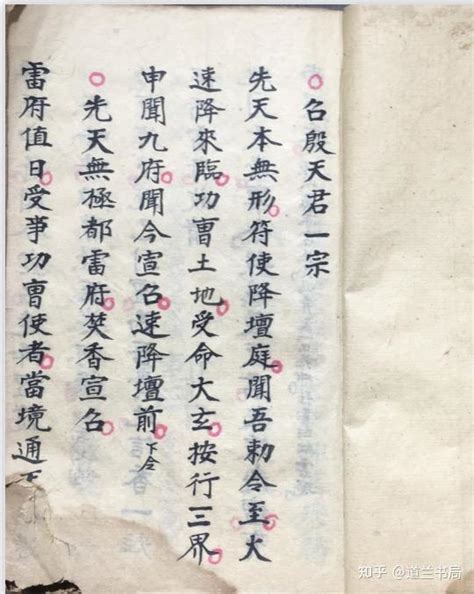 召殷天君一宗
先天本無形符使降壇庭聞吾勅令至火
速降來臨功曹土地受命大玄按行三界
申聞九府聞今宣召速降壇前下令
先天無極都雷府焚香宣召
雷府值日受事功曹使者當境通
知乎 @道兰书局